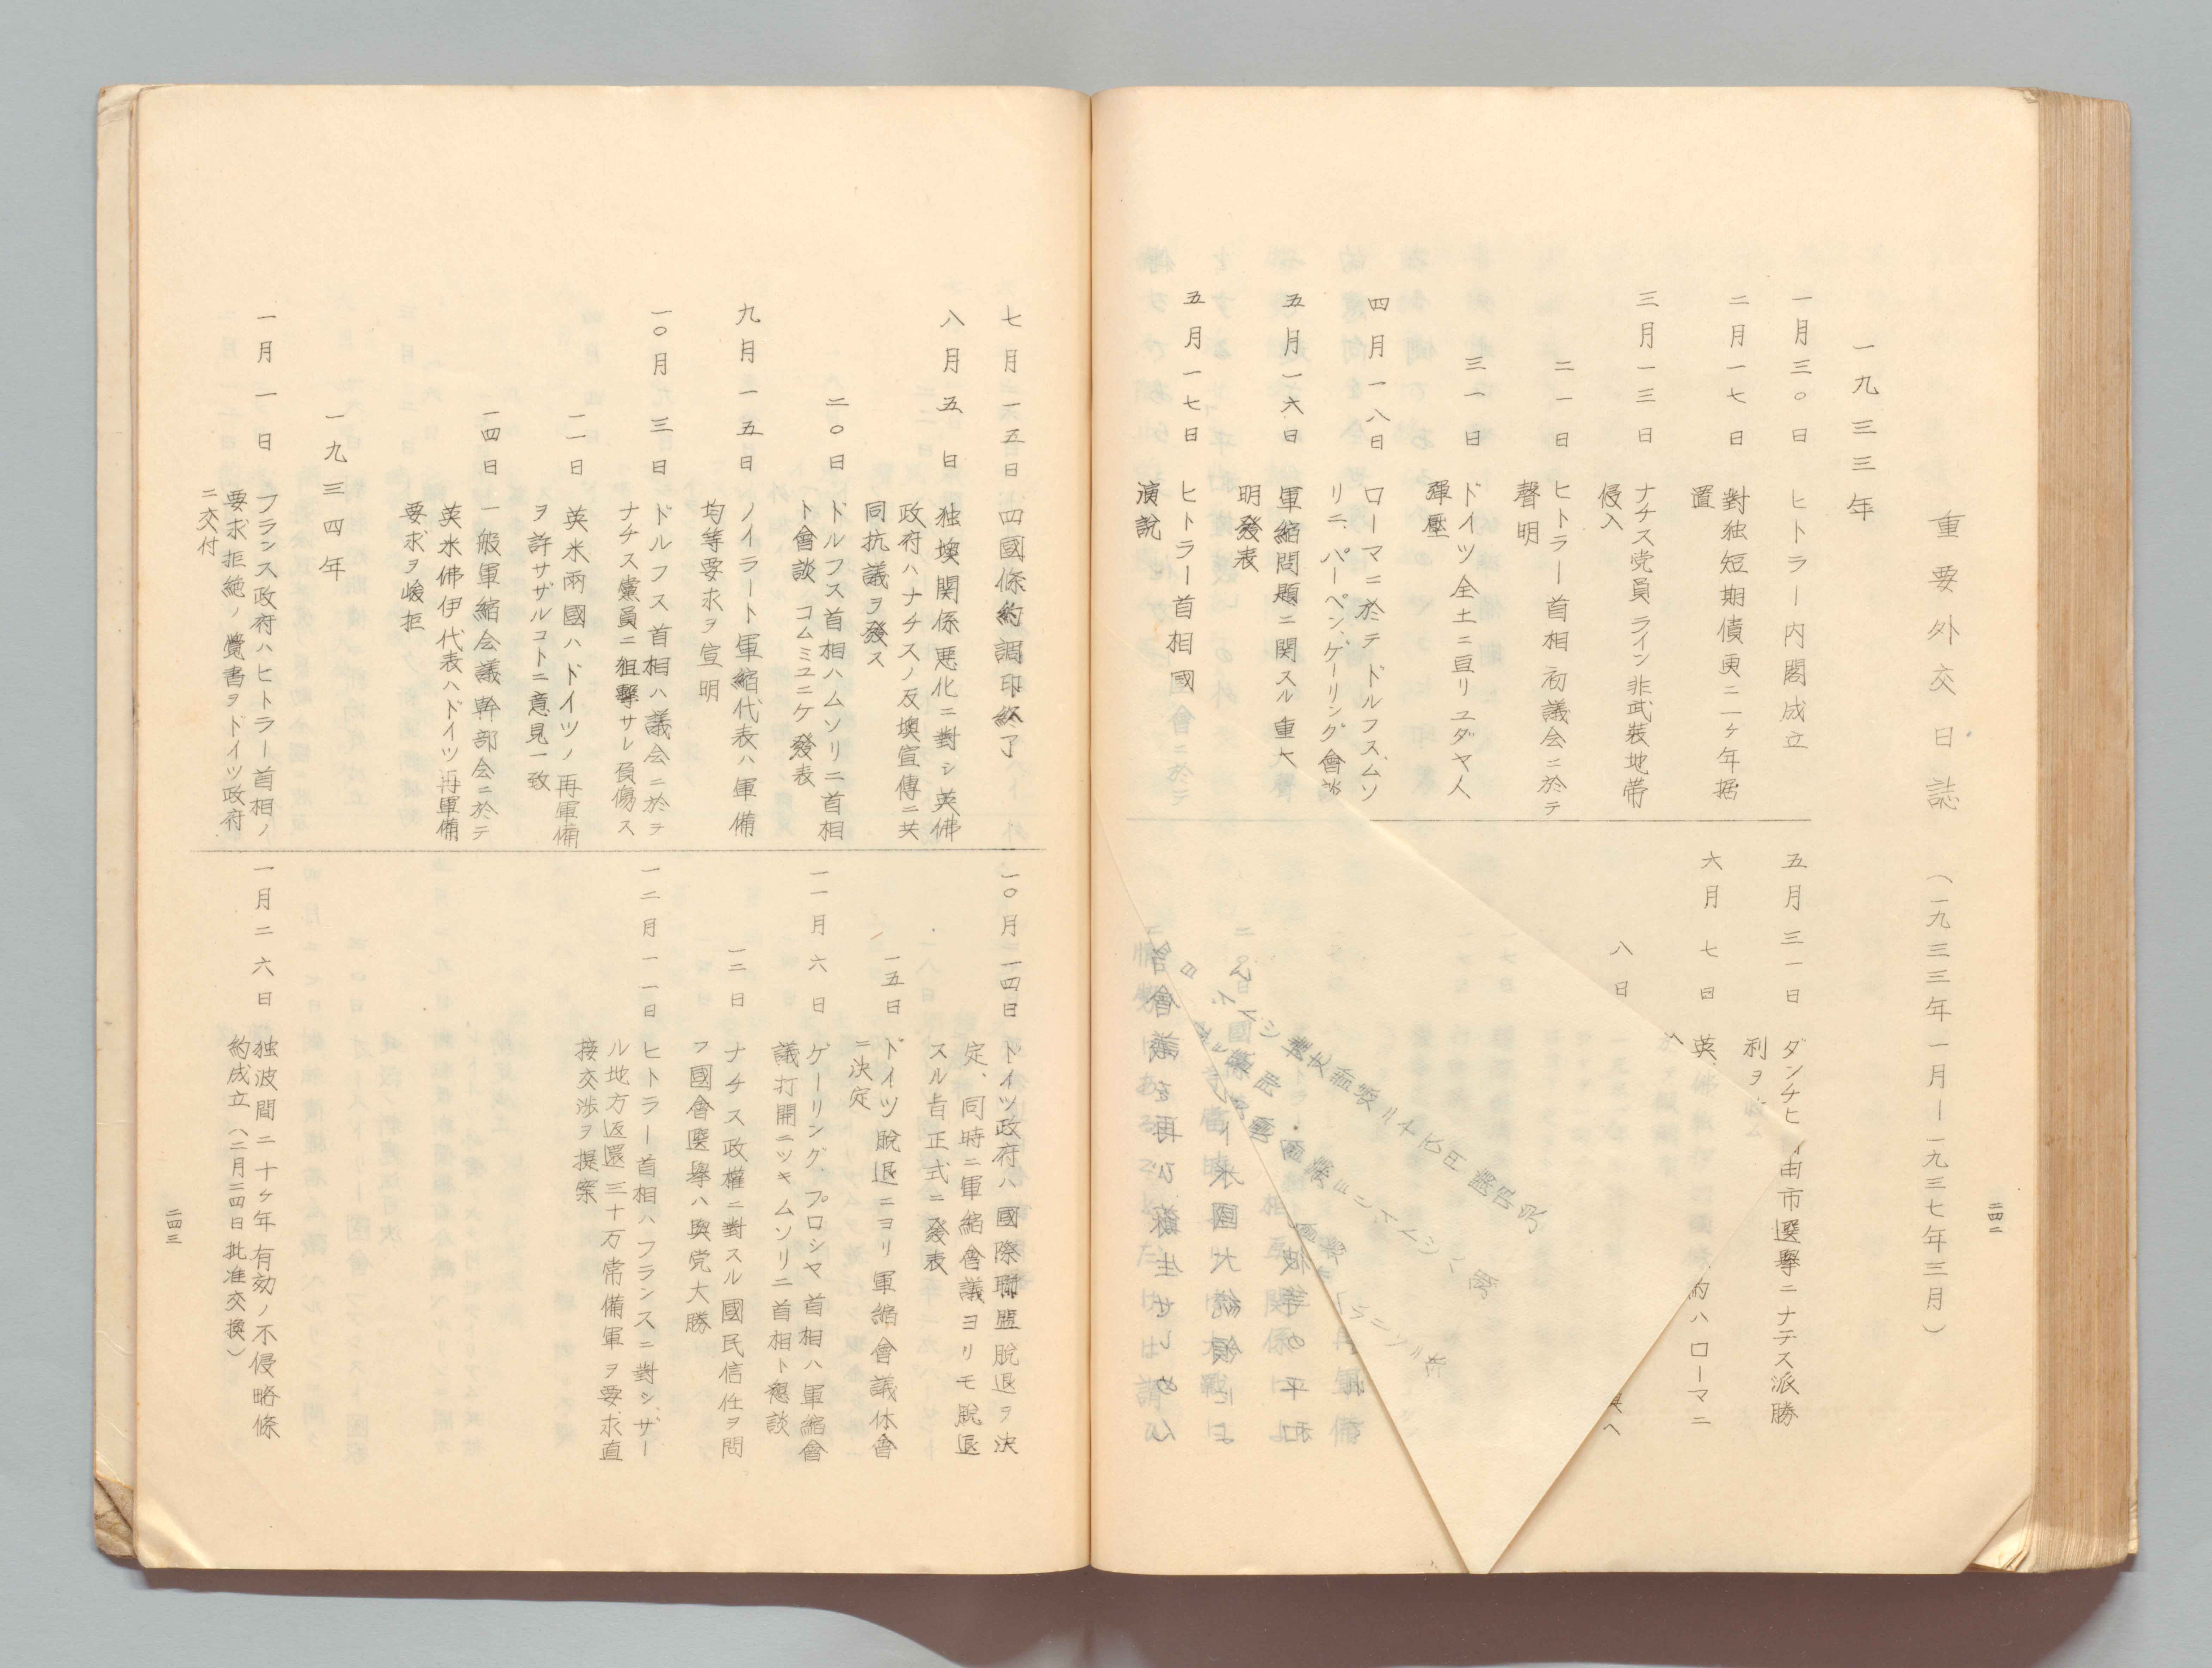 重要外交日誌 (一九三三年一月―一九三七年三月)
一九三三年
一月三〇日 ヒトラー内閣成立
二月一七日 對独短期債更ニ一ヶ年据
置
三月一三日 ナチス党員ライン非武装地帯
侵入
二一日 ヒトラー首相初議会ニ於テ
聲明
三一日 ドイツ全土ニ亘リユダヤ人
彈壓
四月一八日 ローマニ於テドルフス、ムソ
リニ、パーペン、ゲーリング會談
五月一六日 軍縮問題ニ関スル重大聲
明發表
五月一七日 ヒトラー首相國會ニ於テ
演説
五月三一日 ダンチヒ 由市選擧ニナチス派勝
利ヲ
六月七日 英、佛 約ハローマニ
八日
二四二
七月一五日 四國條約調印終了
八月五日 独墺関係悪化ニ對シ英佛
政府ハナチスノ反墺宣傳ニ共
同抗議ヲ發ス
二〇日 ドルフス首相ハムソリニ首相
ト會談 コムミユニケ發表
九月一五日 ノイラート軍縮代表ハ軍備
均等要求ヲ宣明
一〇月三日 ドルフス首相ハ議会ニ於テ
ナチス黨員ニ狙擊サレ負傷ス
一一日 英米兩國ハドイツノ再軍備
ヲ許サザルコトニ意見一致
一四日 一般軍縮会議幹部会ニ於テ
英米佛伊代表ハドイツ再軍備
要求ヲ峻拒
一九三四年
一月一日 フランス政府ハヒトラー首相ノ
要求拒絶ノ覺書ヲドイツ政府
ニ交付
一〇月一四日 ドイツ政府ハ國際聯盟脱退ヲ決
定、同時ニ軍縮會議ヨリモ脱退
スル旨正式ニ發表
一五日 ドイツ脱退ニヨリ軍縮會議休會
ニ決定
一一月六日 ゲーリング、プロシヤ首相ハ軍縮會
議打開ニツキムソリニ首相ト懇談
一二日 ナチス政權ニ對スル國民信任ヲ問
フ國會選擧ハ與党大勝
一二月一一日 ヒトラー首相ハフランスニ對シ、ザー
ル地方返還三十万常備軍ヲ要求直
接交渉ヲ提案
一月二六日 独波間ニ十ヶ年有効ノ不侵略條
約成立(二月二四日批准交換)
二四三